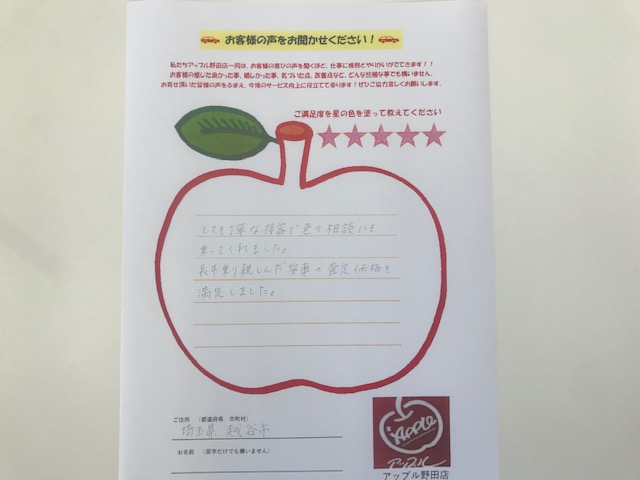 お客様の声をお聞かせください！
私たちアップル野田店一同は、お客様の喜びの声を聞くほど、仕事に情熱とやりがいがでてきます！！
お客様の感じた良かった事、嬉しかった事、気づいた点、改善点など、どんな些細な事でも構いません。
お寄せ頂いた皆様の声をふまえ、今後のサービス向上に役立てて参ります！ぜひご協力宜しくお願いします。
ご満足度を星の色を塗って教えてください
とても丁寧な接客で色々相談にも
乗ってくれました。
長年乗り親しんだ愛車の査定価格も
満足しました。
ご住所 （都道府県 市町村）
埼玉県 越谷市
お名前 （苗字だけでも構いません）
Apple
アップル
アップル野田店